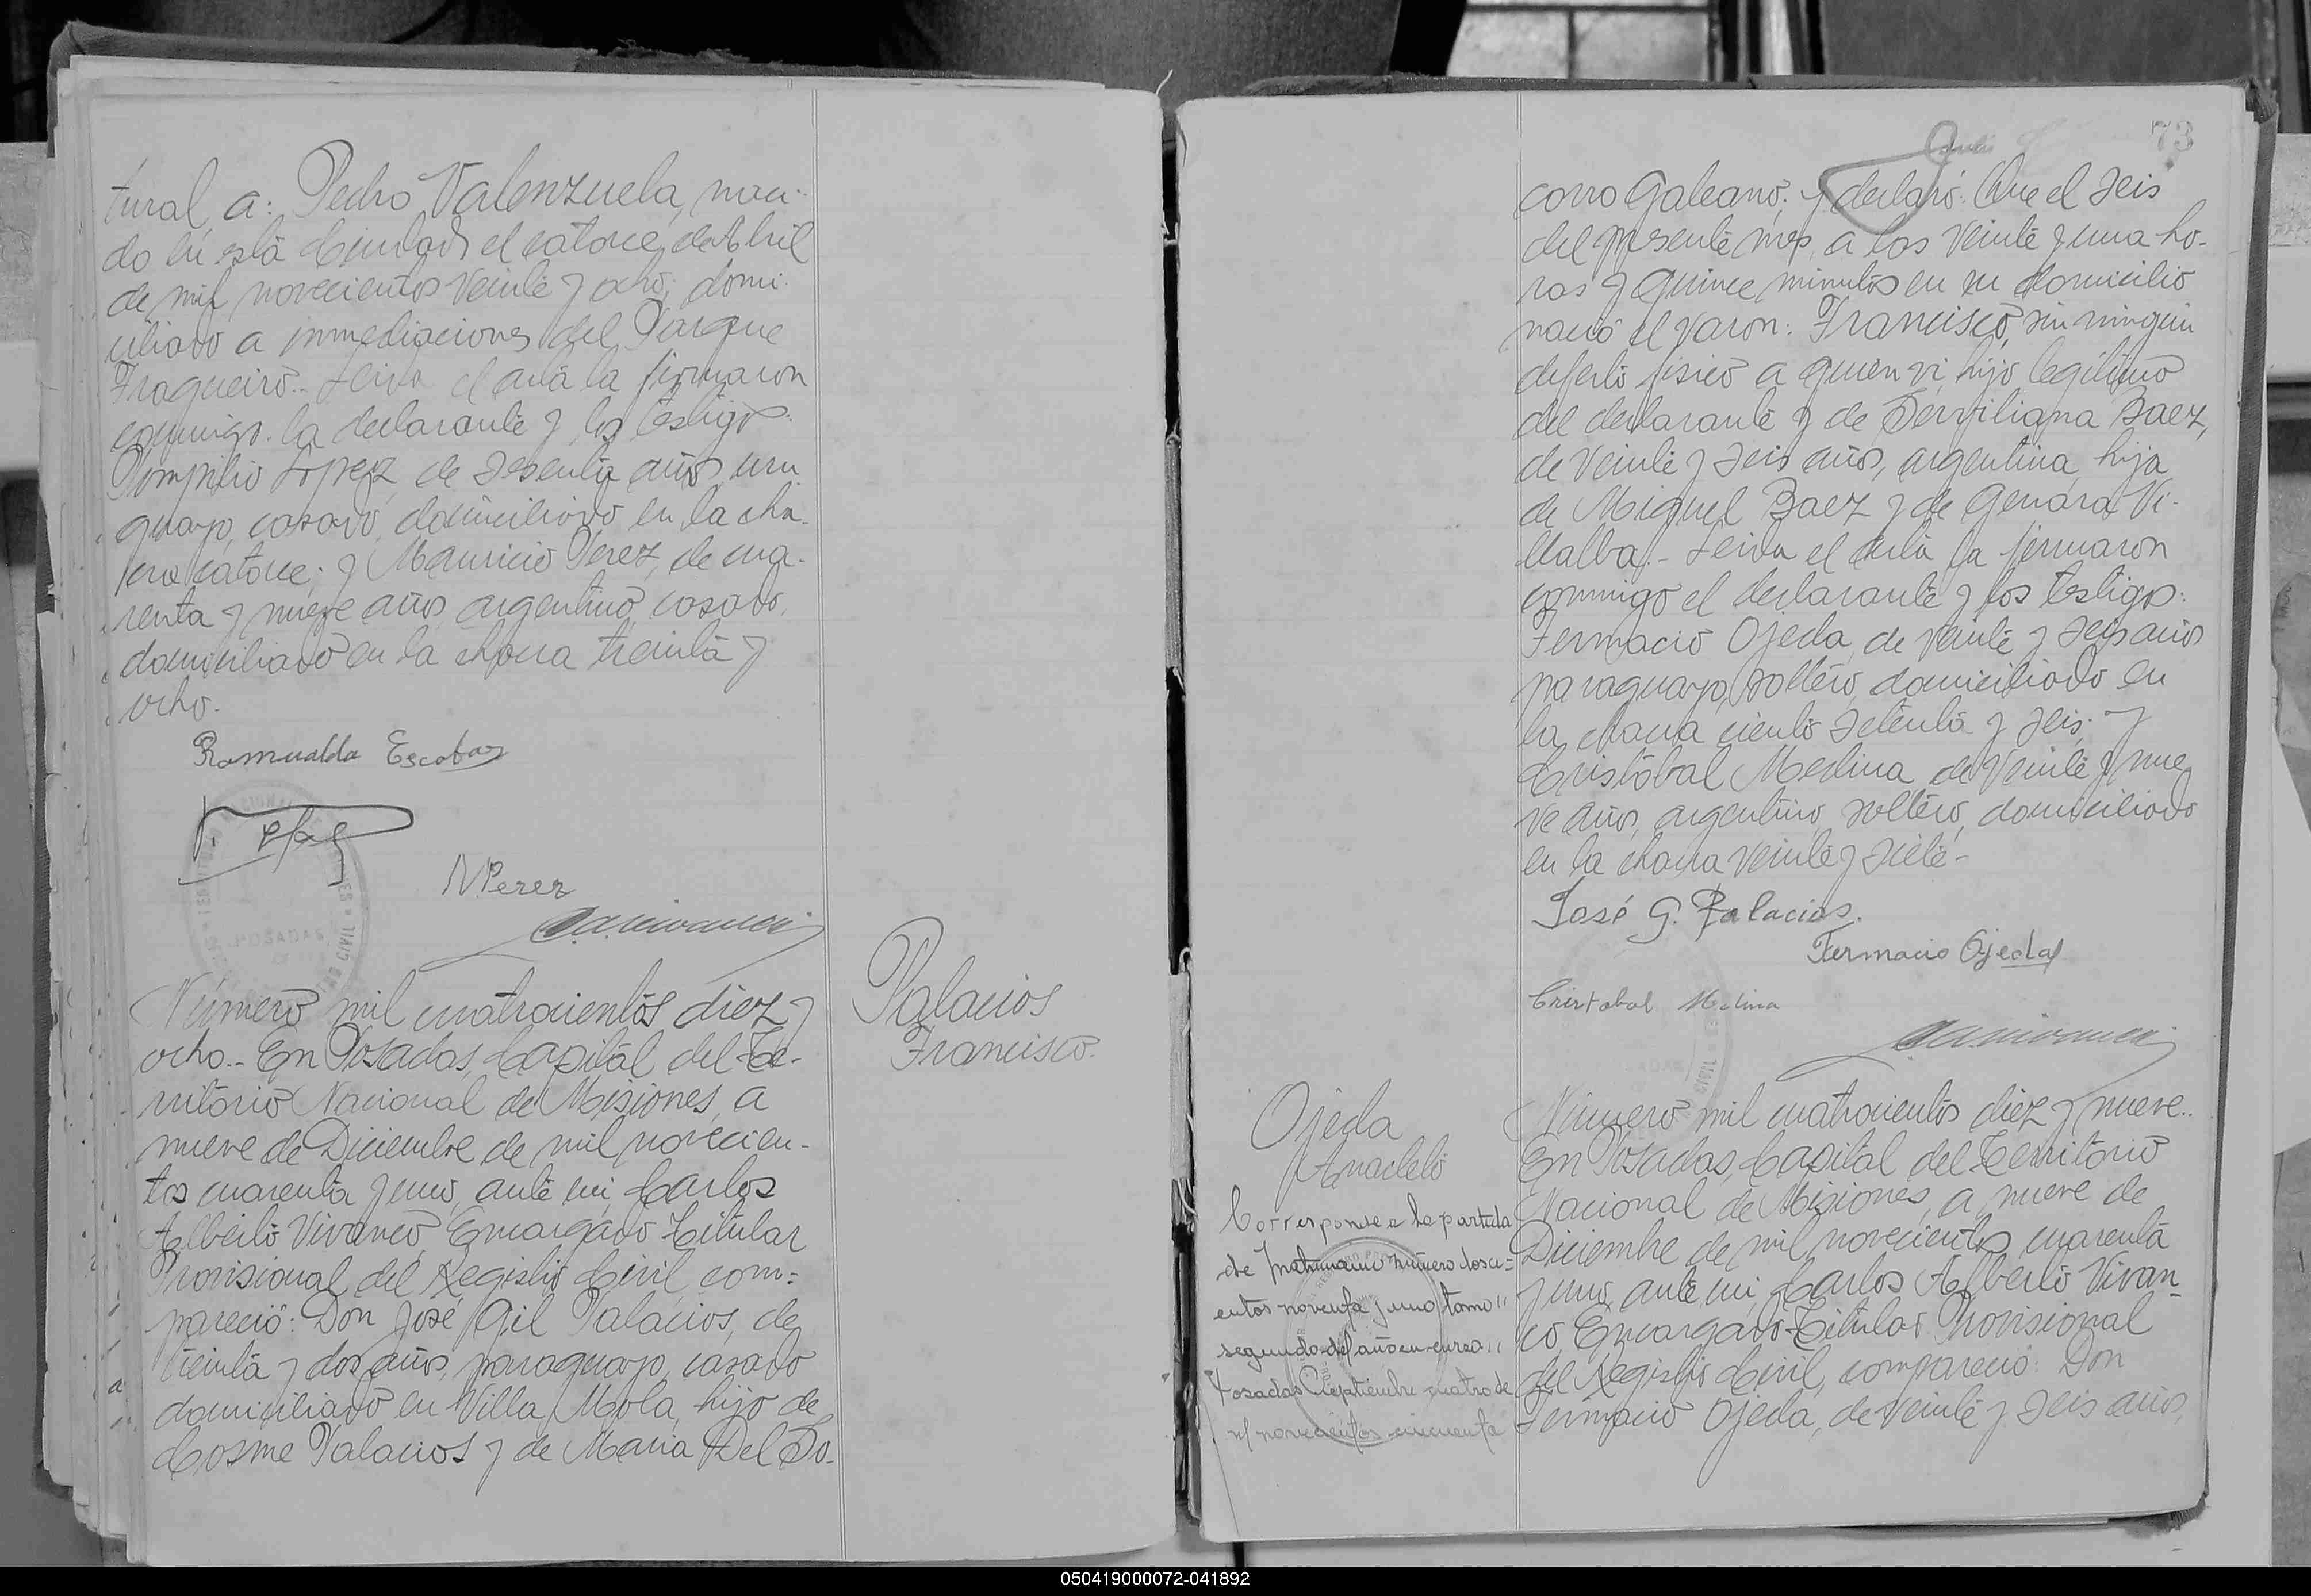 tural, a: Pedro Valenzuela, naci-
do en esta Ciudad el catorce de Abril
de mil novecientos veinte y ocho; domi-
ciliado a inmediaciones del Parque
Fragueiro.- Leida el acta la firmaron
conmigo la declarante y los testigos:
Pompilio Lopez, de sesenta años, uru-
guayo, casado, domiciliado en la cha-
cra catorce; y Mauricio Perez, de cua-
renta y nueve años, argentino, casado,
domiciliado en la chacra treinta y
ocho.
Romualda Escobar
M Perez
Número mil cuatrocientos diez y
ocho.- En Posadas, Capital del Te-
rritorio Nacional de Misiones, a
nueve de Diciembre de mil novecien-
tos cuarenta y uno, ante mi, Carlos
Alberto Vivanco, Encargado Titular
Provisional del Registro Civil, com-
pareció: Don José Gil Palacios, de
treinta y dos años, paraguayo, casado
domiciliado en Villa Mola, hijo de
Cosme Palacios y de Maria Del So-
Palacios
Francisco.
73
corro Galeano; y declaró: Que el seis
del presente mes, a las veinte y una ho-
ras y quince minutos en su domicilio
nació el varon: Francisco, sin ningun
defecto fisico a quien vi, hijo legitimo
del declarante y de Serviliana Baez,
de veinte y seis años, argentina, hija
de Miguel Baez y de Genara Vi-
llalba.- Leida el acta la firmaron
conmigo el declarante y los testigos:
Fermacio Ojeda, de veinte y seis años
paraguayo, soltero, domiciliado en
la chacra ciento setenta y seis; y
Cristóbal Medina, de veinte y nue-
ve años, argentino, soltero, domiciliado
en la chacra veinte y siete-
José G. Palacios.
Fermacio Ojeda
Cristobal Medina
Ojeda
Anacleto
Corresponde a la partida
de matrimonio número dosci-
entos noventa y uno tomo
segundo del año en curso
Posadas Septiembre cuatro de
mil novecientos cincuenta
Número mil cuatrocientos diez y nueve.
En Posadas, Capital del Territorio
Nacional de Misiones, a nueve de
Diciembre de mil novecientos cuarenta
y uno, ante mi, Carlos Alberto Vivan-
co, Encargado Titular Provisional
del Registro Civil, compareció: Don
Fermacio Ojeda, de veinte y seis años,
050419000072-041892